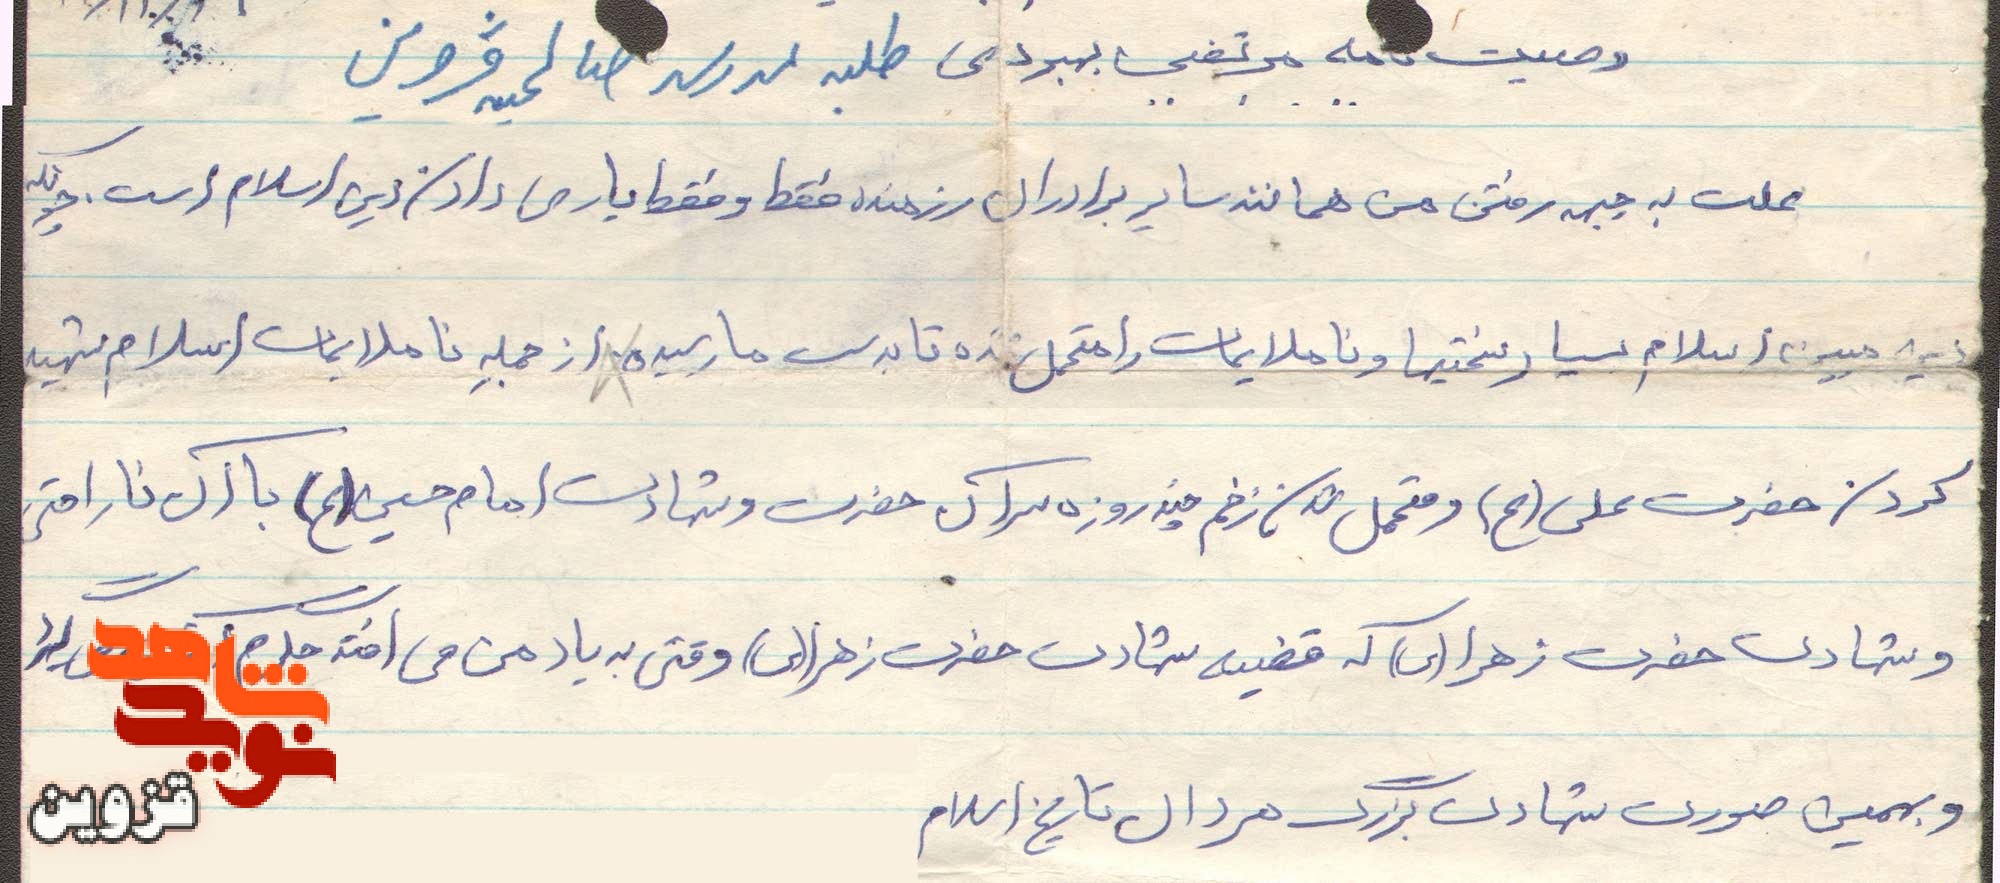 وصیت نامه مرتضی بهبودی طلبه مدرسه صالحیه قزوین
علت به جبهه رفتن من همانند سایر برادران رزمنده فقط و فقط یاری دادن دین اسلام است. چونکه
دین مبین اسلام بسیار سختیها و ناملایمات را متحمل شده تا بدست ما رسیده از جمله ناملایمات اسلام شهید
کردن حضرت علی (ع) و متحمل شدن زخم چند روزه سر آن حضرت و شهادت امام حسین (ع) با آن ناراحتی
و شهادت حضرت زهرا (س) که قضیه شهادت حضرت زهرا (س) وقتی به یاد من می افتد جگرم
و بهمین صورت شهادت بزرگ مردان تاریخ اسلام
نوید شاهد
قزوین